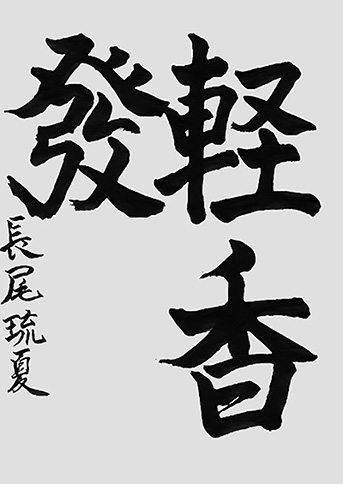 軽香
發
長尾琉夏